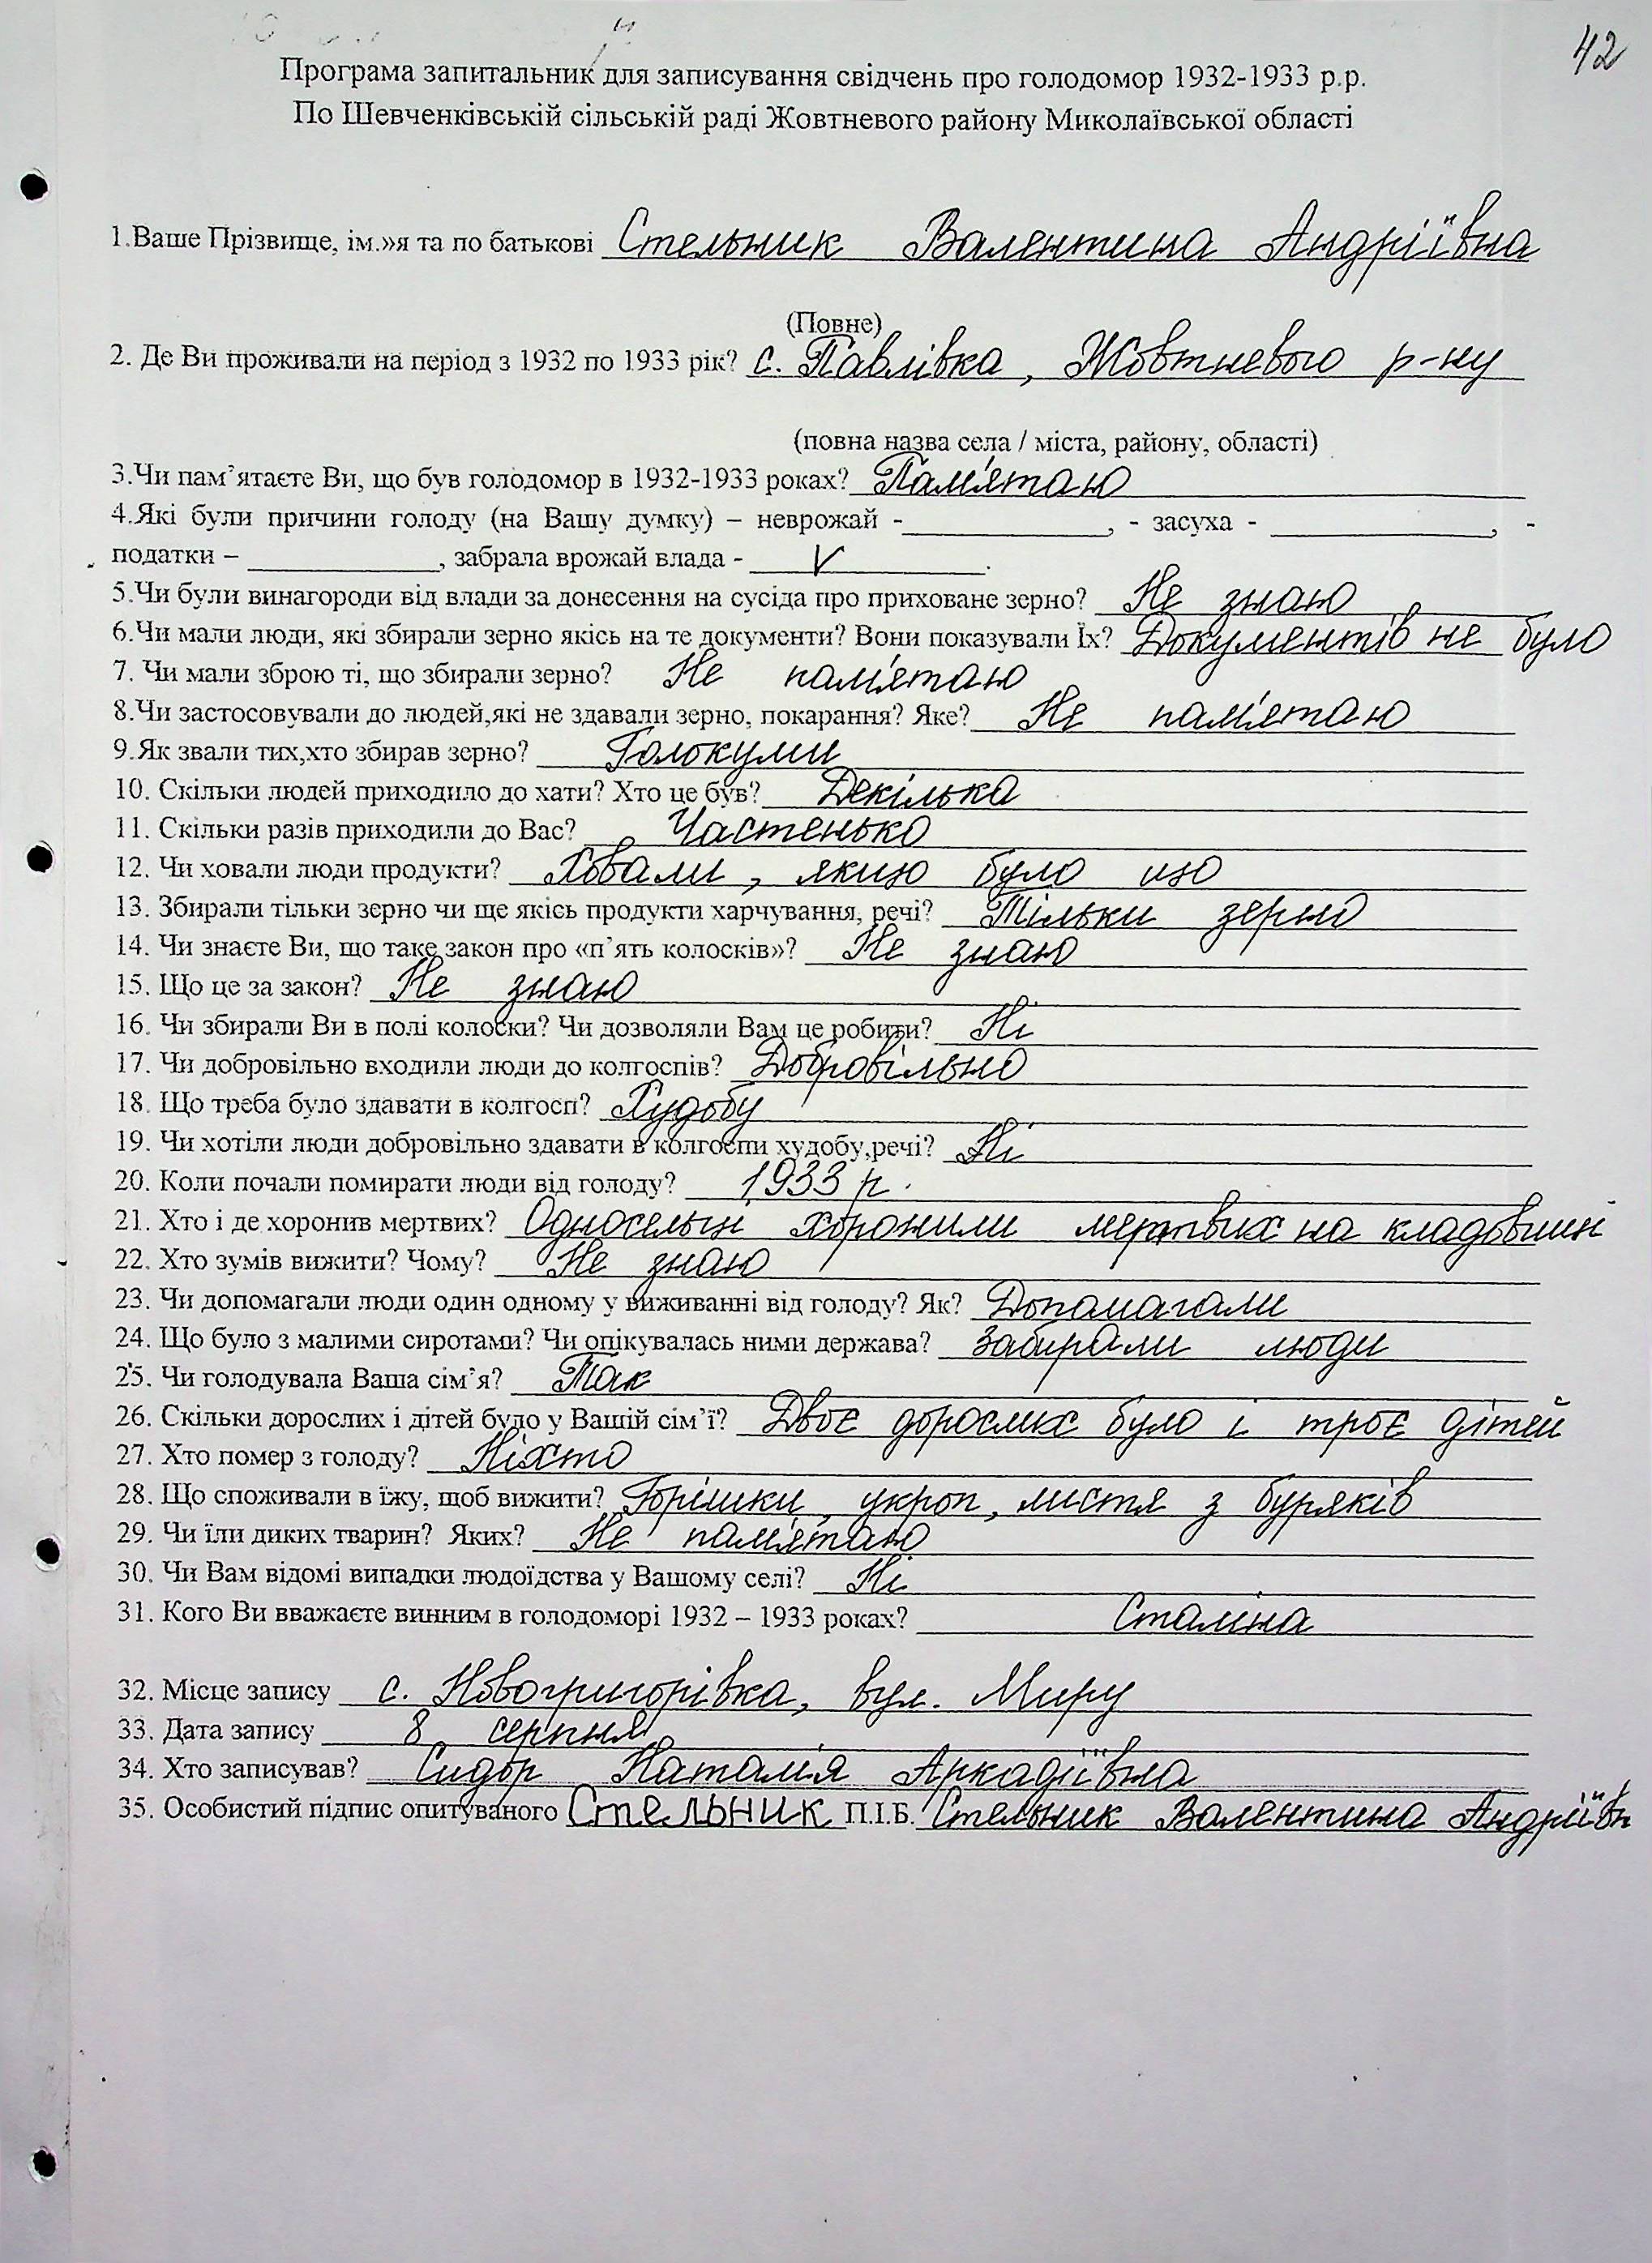 42
Програма запитальник для записування свідчень про голодомор 1932-1933 р.р.
По Шевченківській сільській раді Жовтневого району Миколаївської області
1.Ваше Прізвище, ім.»я та по батькові Стельник Валентина Андріївна
(Повне)
2. Де Ви проживали на період з 1932 по 1933 рік? с. Павлівка, Жовтневого р-ну
(повна назва села / міста, району, області)
3.Чи пам’ятаєте Ви, що був голодомор в 1932-1933 роках? Пам'ятаю
4.Які були причини голоду (на Вашу думку) – неврожай -____________, - засуха - ____________, -
податки – ____________, забрала врожай влада - V.
5.Чи були винагороди від влади за донесення на сусіда про приховане зерно? Не знаю
6.Чи мали люди, які збирали зерно якісь на те документи? Вони показували Їх? Документів не було
7. Чи мали зброю ті, що збирали зерно? Не пам'ятаю
8.Чи застосовували до людей,які не здавали зерно, покарання? Яке? Не пам'ятаю
9.Як звали тих,хто збирав зерно? Голокуми
10. Скільки людей приходило до хати? Хто це був? Декілька
11. Скільки разів приходили до Вас? Частенько
12. Чи ховали люди продукти? Ховали, якщо було що
13. Збирали тільки зерно чи ще якісь продукти харчування, речі? Тільки зерно
14. Чи знаєте Ви, що таке закон про «п’ять колосків»? Не знаю
15. Що це за закон? Не знаю
16. Чи збирали Ви в полі колоски? Чи дозволяли Вам це робити? Ні
17. Чи добровільно входили люди до колгоспів? Добровільно
18. Що треба було здавати в колгосп? Худобу
19. Чи хотіли люди добровільно здавати в колгоспи худобу,речі? Ні
20. Коли почали помирати люди від голоду? 1933 р.
21. Хто і де хоронив мертвих? Односельці хоронили мертвих на кладовищі
22. Хто зумів вижити? Чому? Не знаю
23. Чи допомагали люди один одному у виживанні від голоду? Як? Допомагали
24. Що було з малими сиротами? Чи опікувалась ними держава? Забирали люди
25. Чи голодувала Ваша сім’я? Так
26. Скільки дорослих і дітей було у Вашій сім’ї? Двоє дорослих було і троє дітей
27. Хто помер з голоду? Ніхто
28. Що споживали в їжу, щоб вижити? Горішки, укроп, листя з буряків
29. Чи їли диких тварин? Яких? Не пам'ятаю
30. Чи Вам відомі випадки людоїдства у Вашому селі? Ні
31. Кого Ви вважаєте винним в голодоморі 1932 – 1933 роках? Сталіна
32. Місце запису с. Новогригорівка, вул. Миру
33. Дата запису 8 серпня
34. Хто записував? Сидор Наталія Аркадіївна
35. Особистий підпис опитуваного Стельник П.І.Б. Стельник Валентина Андріївн